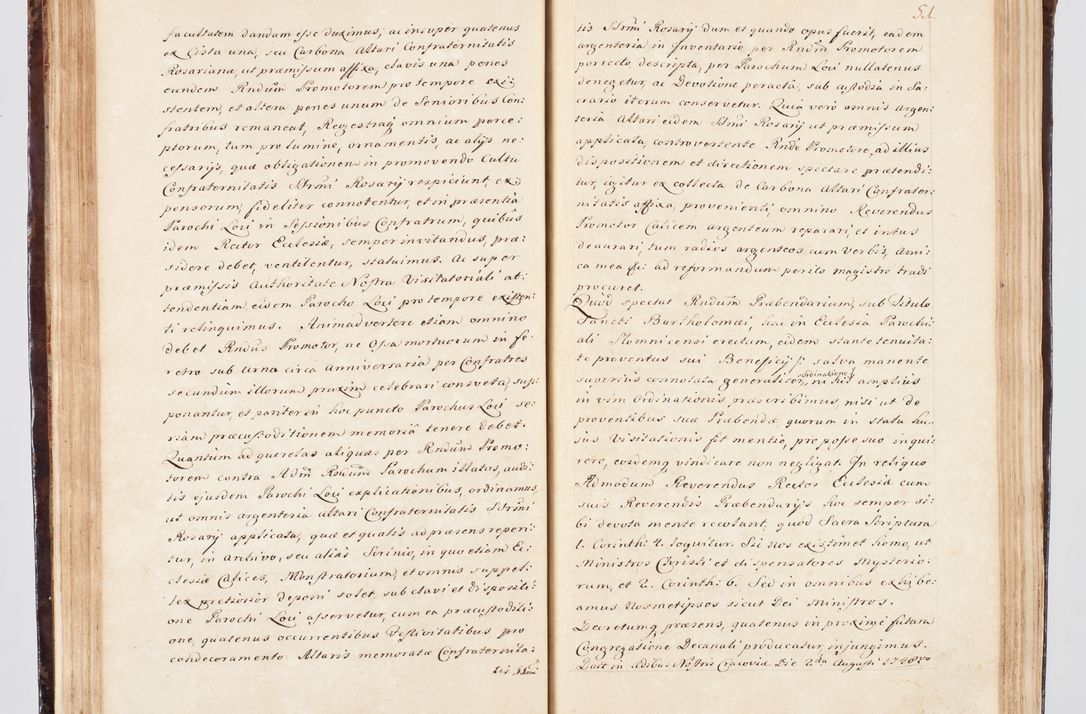 facultatem dandam esse duximus, ac insuper quatenus
ex Cista una, seu Carbona Altari Confraternitatis
Rosariana, ut præmissum affixa, clavis una penes
eundem Rndum Promotorem pro tempore exi:
stentem, et altera penes unum de Senioribus Con:
fratribus remaneat, Regestraq omnium perce:
ptorum, tum pro lumine, ornamentis, ac alijs ne:
cessarijs, quæ obligationem in promovendo Cultu
Confraternitatis SSrmi Rosarij respiciunt, ex:
pensorum, fideliter connotentur, et in præsentia
Parochi Loci in Sessionibus Confratrum, quibus
idem Rector Ecclesiæ, semper invitandus, præ:
sidere debet, ventilentur, statuimus. Ac super
præmissis Authoritate Nostra Visitatoriali at:
tendentiam eidem Parocho Loci pro tempore existen:
ti relinquimus. Animadvertere etiam omnino
debet Rndus Promotor, ne Ossa mortuorum in fe:
retro sub Urna circa Anniversaria per Confratres
secundum illorum praxim celebrari consveta, sup:
ponantur, et pariter in hoc puncto Parochus Loci se:
riam præcustoditionem memoriâ tenere debet.
Quantum ad querelas aliquas per Rndum Promo:
torem contra Adm Rndum Parochum illatas, audi:
tis ejusdem Parochi Loci explicationibus, ordinamus,
ut omnis argenteria Altari Confraternitatis SSrmi
Rosarij applicata, quæ et qualis ad præsens reperi:
tur, in Archivo, seu alias Scrinio, in quo etiam Ec:
clesiæ Calices, Monstratorium, et omnis suppel:
lex pretiosior deponi solet, sub clavi et dispositi:
one Parochi Loci asservetur, cum ea præcustoditi:
one, quatenus occurrentibus Festivitatibus pro
condecoramento Altaris memoratæ Confraternita:
tis SSrmi
51.
tis SSrmi Rosarij dum et quando opus fuerit, eadem
argenteria in Inventario per Rndum Promotorem
porrecto, descripta, per Parochum Loci nullatenus
denegetur, ac Devotione peractâ, sub custodia in Sa:
crario iterum conservetur. Quia verò omnis argen:
teria Altari eidem SSrmi Rosarij ut præmissum
applicata, controvertente Rndo Promotore, ad illius
dispositionem et directionem spectare prætendi:
tur, igitur ex collecta de Carbona Altari Confrater:
nitatis affixa, provenienti, omnino Reverendus
Promotor Calicem argenteum reparari, et intus
deaurari, tum radios argenteos cum verbis, Ami:
ca mea &c: ad reformandum perito magistro tradi
procuret.
Quod spectat Rndum Præbendarium, sub Titulo
Sancti Bartholomæi, hac in Ecclesia Parochi:
ali Slomnicensi erectum, eidem stante tenuita:
te proventus sui Beneficij /: salva manente
superius connotata generaliter ordinatione :/ nihil amplius
in vim Ordinationis præscribimus, nisi ut de
proventibus suæ Præbendæ quorum in statu hu:
jus Visitationis fit mentio, pro posse suo inqui:
rere, eosdemq vindicare non negligat. In reliquo
Admodum Reverendus Rector Ecclesiæ cum
suis Reverendis Præbendarijs hoc semper si:
bi devota mente recolant, quod Sacra Scriptura
1. Corinth: 4. loquitur. Sic nos existimet homo, ut
Ministros Christi et dispensatores Mysterio:
rum, et 2. Corinth: 6. Sed in omnibus exhibe:
amus Nosmetipsos sicut Dei Ministros.
Decretumq præsens, quatenus in proximè futura
Congregatione Decanali producatur, injungimus.
Datt in Ædibus Nostris Cracoviæ Die 2da Augusti 1748vo